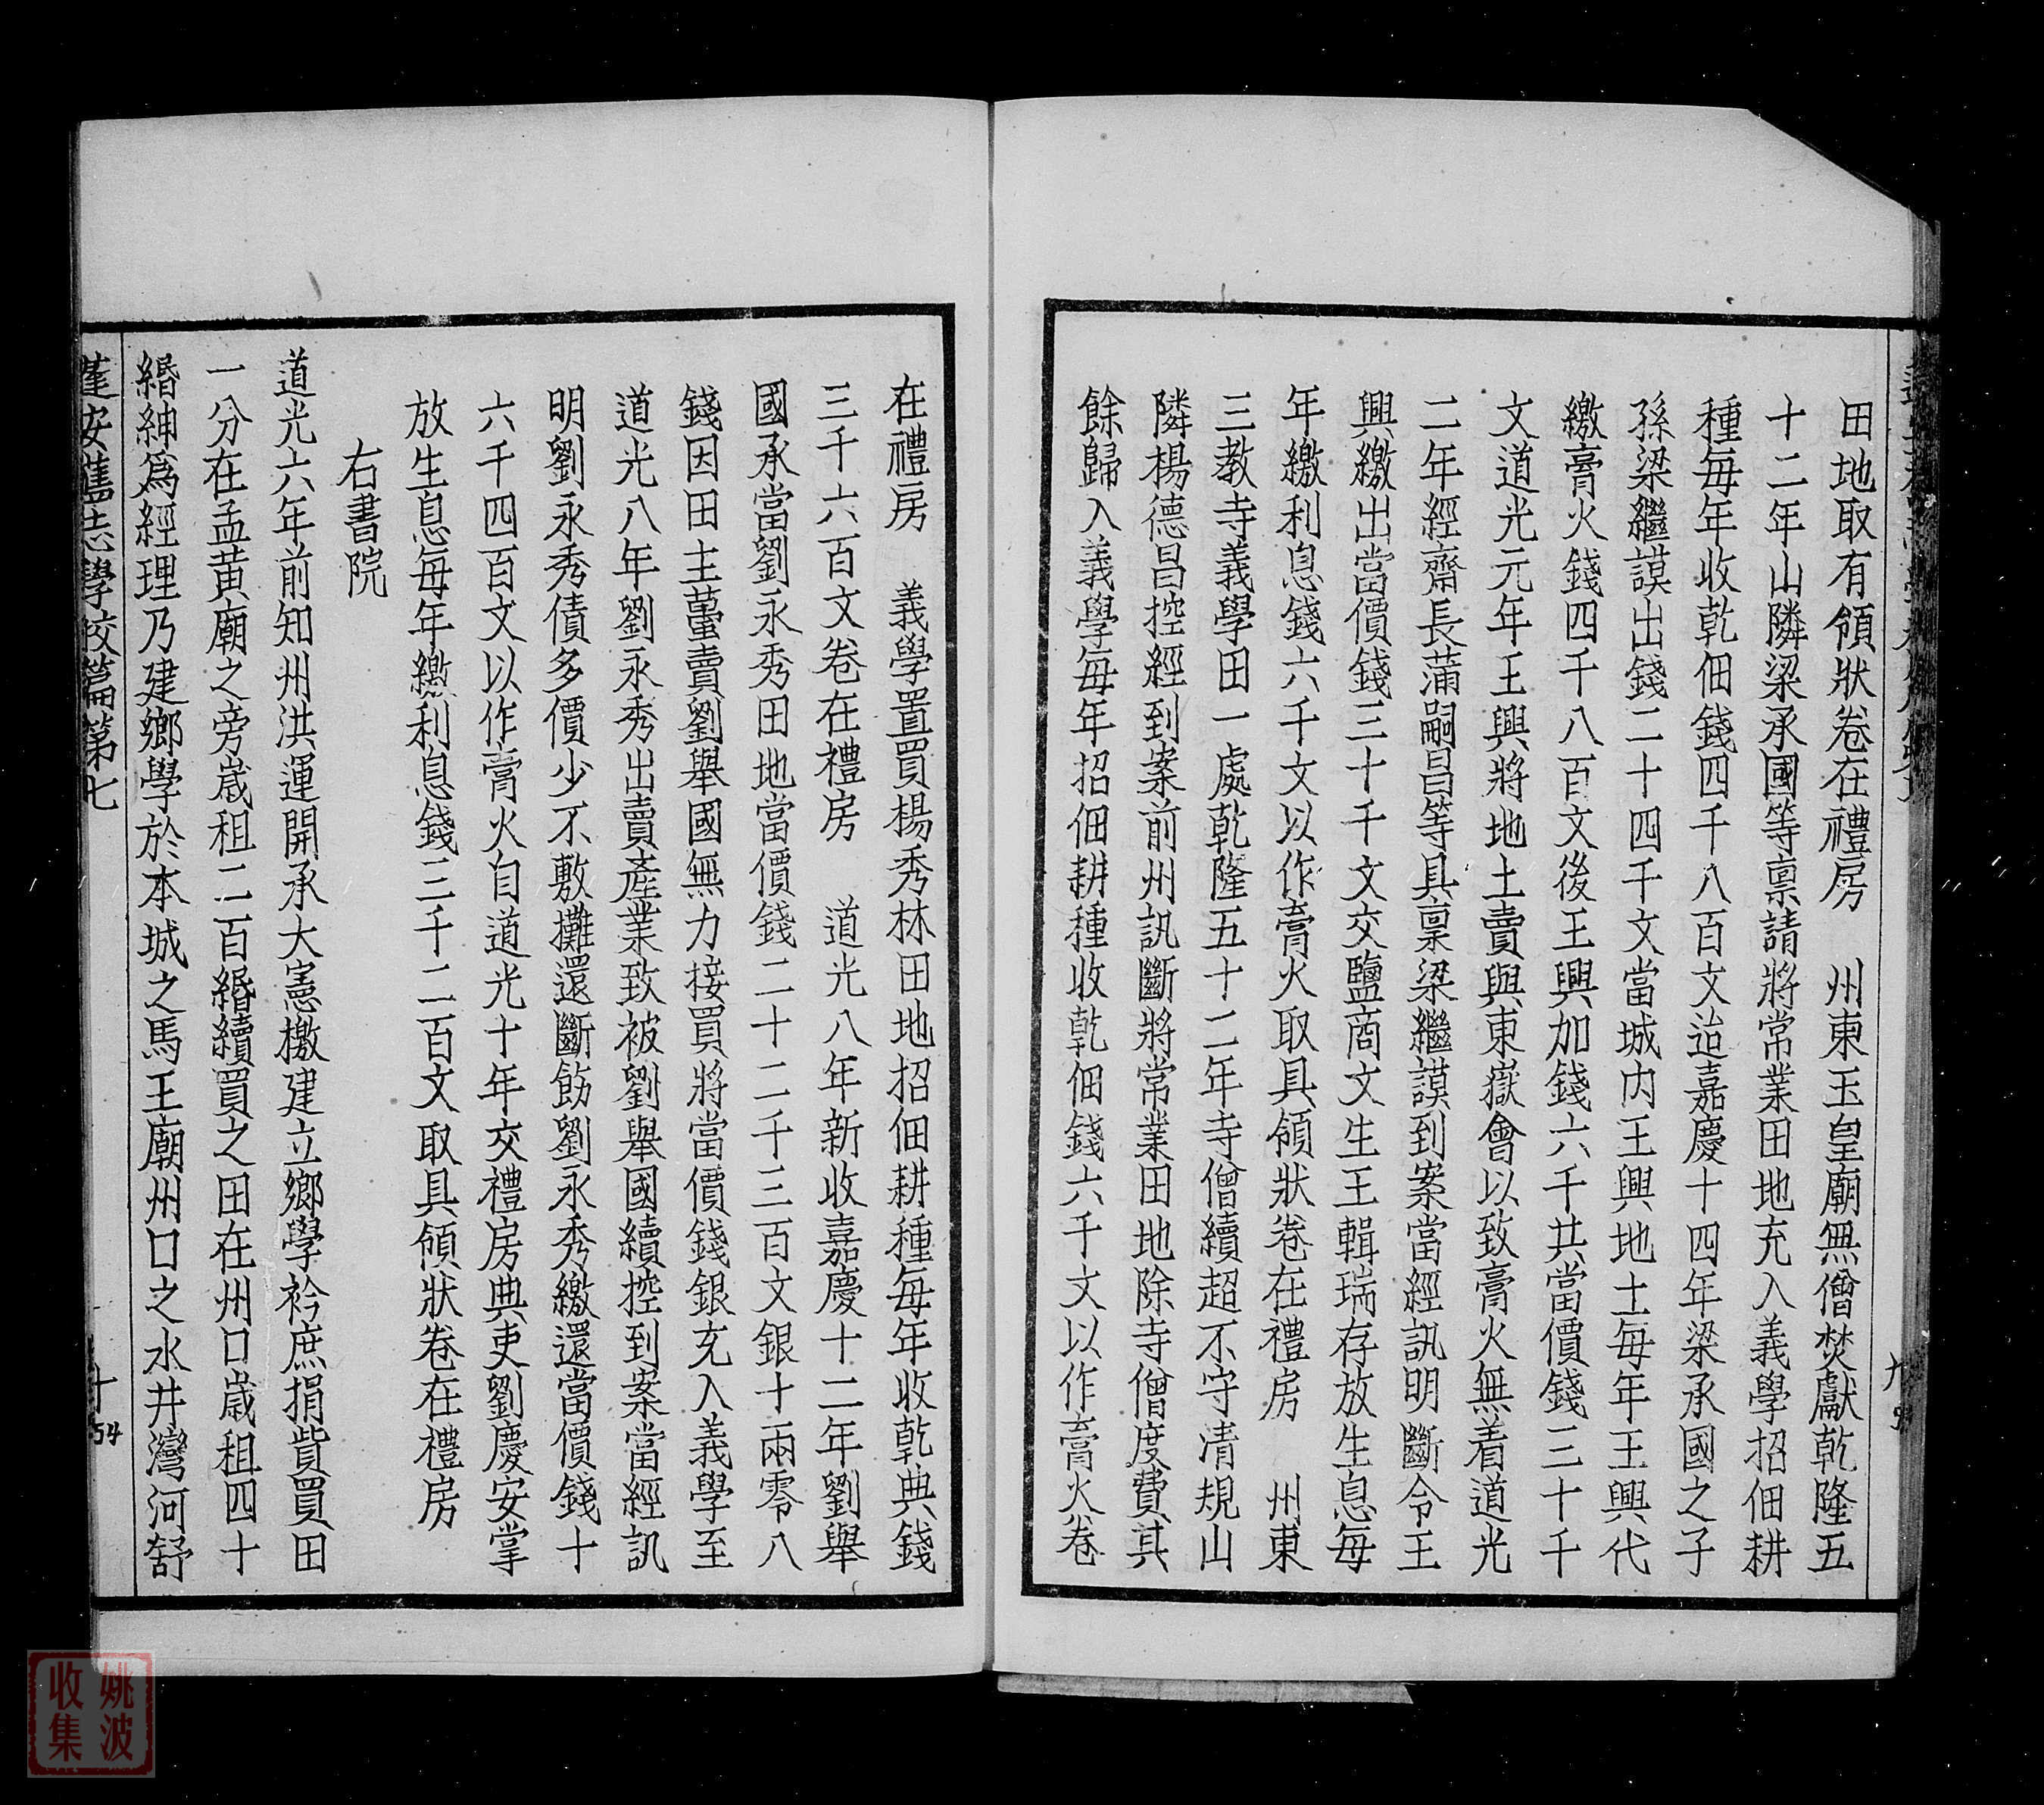 田地取有領狀卷在禮房　州東玉皇廟無僧焚獻乾隆五
十二年山隣梁承國等禀請將常業田地充入義學招佃耕
種每年收乾佃錢四千八百文迨嘉慶十四年梁承國之子
孫梁繼謨出錢二十四千文當城内王興地土每年王興代
繳膏火錢四千八百文後王興加錢六千共當價錢三十千
文道光元年王興將地土賣與東嶽會以致膏火無着道光
二年經齋長蒲嗣昌等具禀梁繼謨到案當經訊明斷令王
興繳出當價錢三十千文交鹽商文生王輯瑞存放生息每
年繳利息錢六千文以作膏火取具領狀卷在禮房　州東
三教寺義學田一處乾隆五十二年寺僧續超不守清規山
隣楊德昌控經到案前州訊斷將常業田地除寺僧度費其
餘歸入義學每年招佃耕種收乾佃錢六千文以作膏火卷
在禮房　義學置買楊秀林田地招佃耕種每年收乾典錢
三千六百文卷在禮房　道光八年新收嘉慶十二年劉舉
國承當劉永秀田地當價錢二十二千三百文銀十兩零八
錢因田主薑賣劉舉國無力接買將當價錢銀充入義學至
道光八年劉永秀出賣產業致被劉舉國續控到案當經訊
明劉永秀債多價少不敷攤還斷飭劉永秀繳還當價錢十
六千四百文以作膏火自道光十年交禮房典吏劉慶安掌
放生息每年繳利息錢三千二百文取具領狀卷在禮房
右書院
道光六年前知州洪運開承大憲檄建立鄉學衿庶捐貲買田
一分在孟黃廟之旁歲租二百緡續買之田在州口歲租四十
緡紳爲經理乃建鄉學於本城之馬王廟州口之水井灣河舒
蓬安舊志學校篇第七
十
54
九